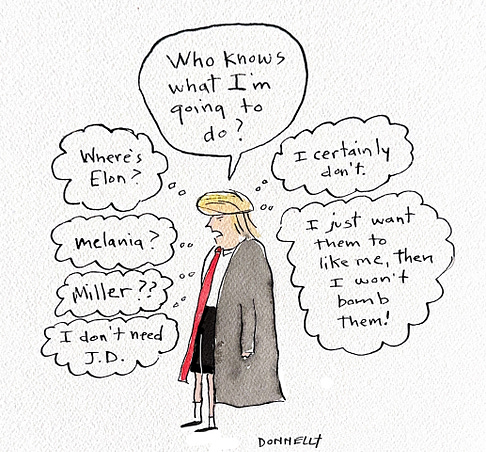 Who knows
what I'm
going to
do?
Where's
Elon?
I certainly
don't.
melania?
I just want
them to
like me, then
I won't
bomb
them!
Miller??
I don't need
J.D.
DONNELLY